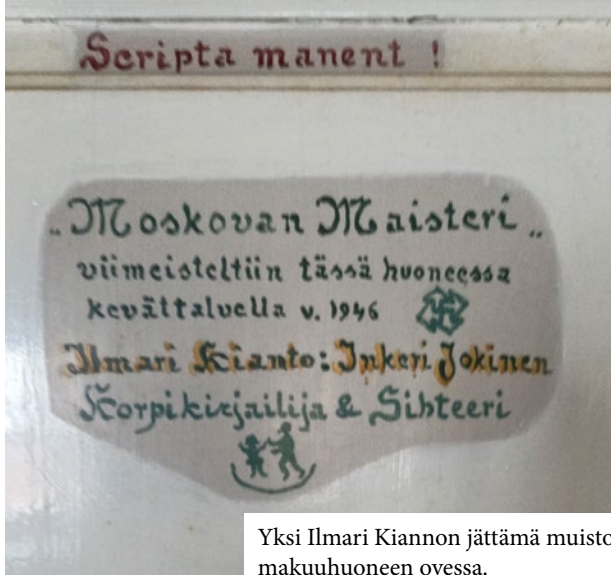 Scripta manent !
„Moskovan Maisteri„
viimeisteltiin tässä huoneessa
kevättalvella v. 1946
Ilmari Kianto: Inkeri Jokinen
Korpikirjailija & Sihteeri
Yksi Ilmari Kiannon jättämä muisto
makuuhuoneen ovessa.